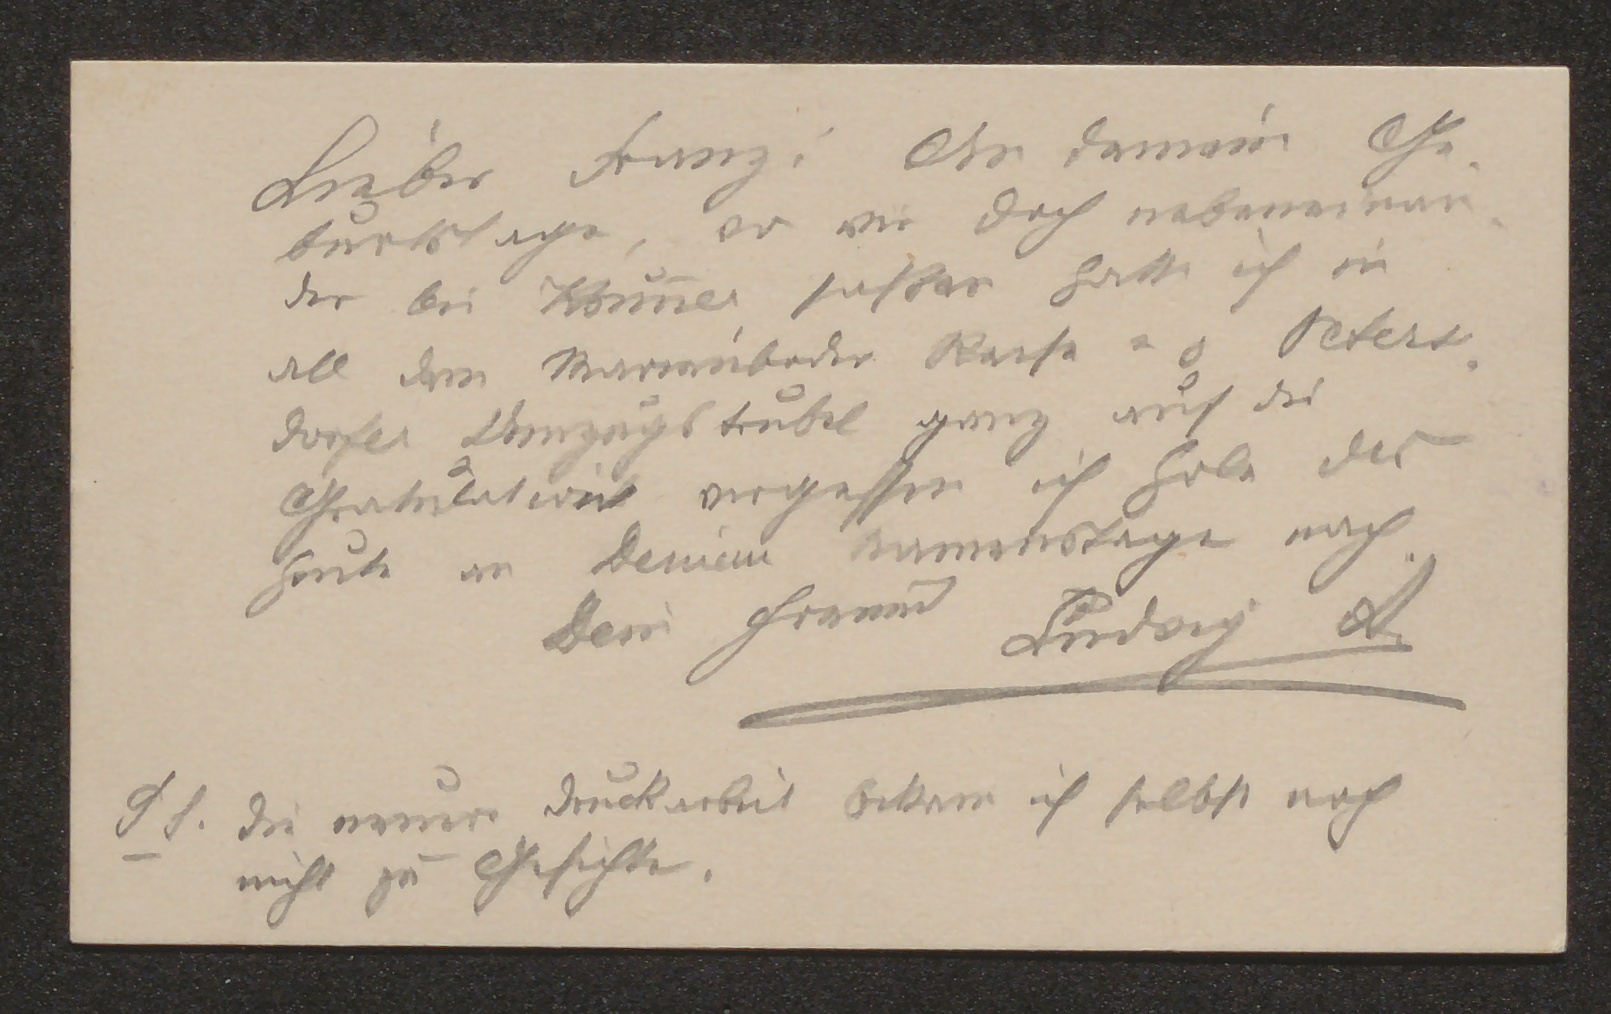 Lieber Franz! An deinem Ge-
burtstage, wo wir doch nebeneinan-
der bei saßen hatte ich in
all dem Marienbader Reise = o Peters-
dorfer Umzugstrubel ganz auf die
Gratulation vergessen ich hole das
heute an Deinem Namenstage nach.
Dein Freund Ludwig
PS. Die neuere Druckarbeit bekam ich selbst noch
nicht zu Gesichte.